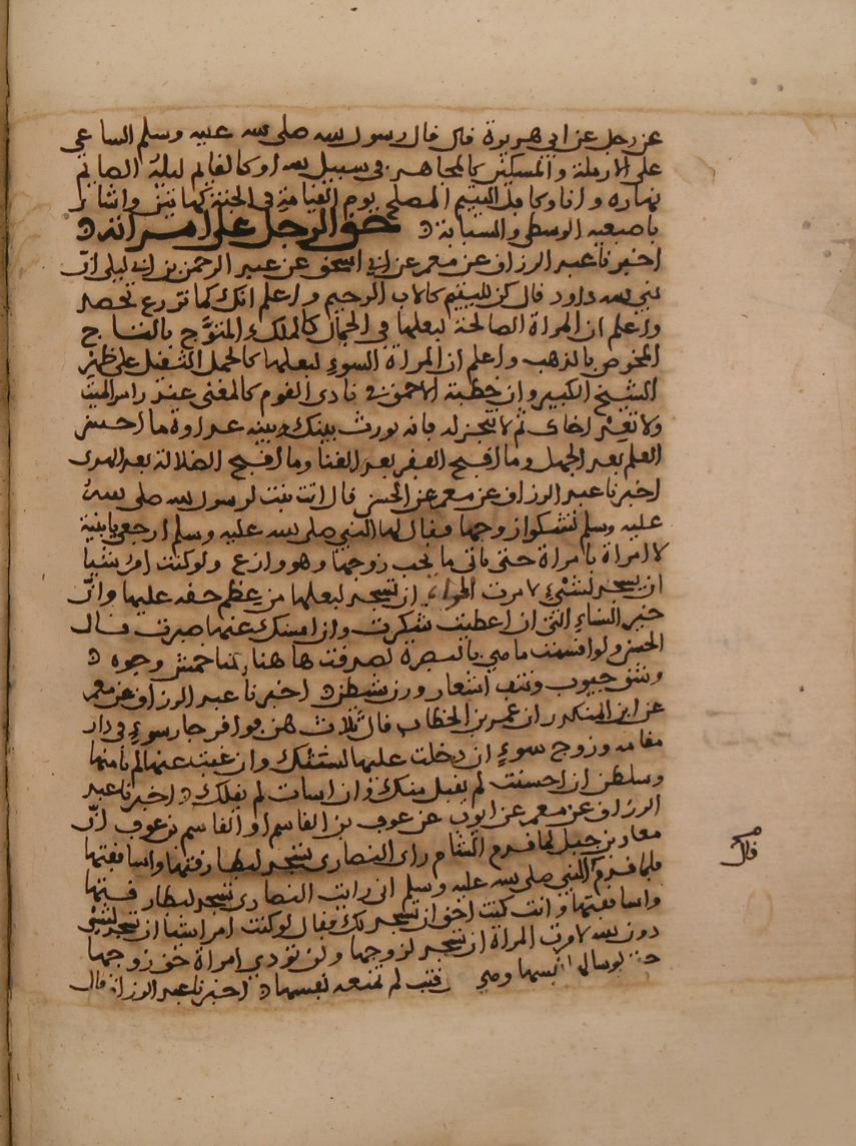 عن رجل عن ابي هريرة قال قال رسول الله صلى الله عليه وسلم الساعي
على الارملة والمسكين كالمجاهد في سبيل الله او كالقايم ليله الصايم
نهاره وانا وكافل اليتيم المصلح يوم القيامة في الجنة كهاتين واشار
باصبعيه الوسطى والسبابة حق الرجل على امراته
اخبرنا عبد الرزاق عن معمر عن ابي اسحق عن عبد الرحمن بن ابي ليلى ان
نبي الله داود قال كن لليتيم كالاب الرحيم واعلم انك كما تزرع تحصد
واعلم ان المراة الصالحة لبعلها في الجمال كالملك المتوج بالتاج
المخوص بالذهب واعلم ان المراة السوء لبعلها كالحمل الثقيل على ظهر
الشيخ الكبير وان خطبة الاحمق في نادي القوم كالمغني عند راس الميت
ولا تعد اخاك ثم لا تنجز له فانه يورث بينك وبينه عداوة ما احسن
العلم بعد الجهل وما اقبح الفقر بعد الغنا وما اقبح الضلالة بعد الهدى
اخبرنا عبد الرزاق عن معمر عن الحسن قال اتت بنت لرسول الله صلى الله
عليه وسلم تشكوا زوجها فقال لها النبي صلى الله عليه وسلم ارجعي يا بنية
لا امراة بامراة حتى تاتي ما يحب زوجها وهو وازع ولو كنت امرا شيا
ان يسجد لشيء لامرت المراة ان تسجد لبعلها من عظم حقه عليها وان
خير النساء التي ان اعطيت شكرت وان امسك عنها صبرت قال
الحسن ولو اقسمت ما هي بالبصرة لصدقت ها هنا خمش وجوه
وشق جيوب ونتف اشعار ورن شيطن اخبرنا عبد الرزاق عن معمر
عن ابن المنكدر ان عمر بن الخطاب قال ثلاث هن فواقر جار سوء في دار
مقامه وزوج سوء ان دخلت عليها لسنتك وان غبت عنها لم تامنها
وسلطن ان احسنت لم يقبل منك وان اسات لم يقلك اخبرنا عبد
الرزاق عن معمر عن ايوب عن عوف بن القاسم او القاسم بن عوف ان
معاذ بن جبل لما قدم الشام راى النصارى تسجد لبطارقتها واساقفتها
فلما قدم على النبي صلى الله عليه وسلم اني رايت النصارى تسجد لبطارقتها
واساقفتها وانت كنت احق ان نسجد لك فقال لو كنت امرا شيا ان يسجد لشي
دون الله لامرت المراة ان تسجد لزوجها ولن تودي امراة حق زوجها
حتى لو سالها نفسها وهي قتب لم تمنعه نفسها اخبرنا عبد الرزاق قال
قال